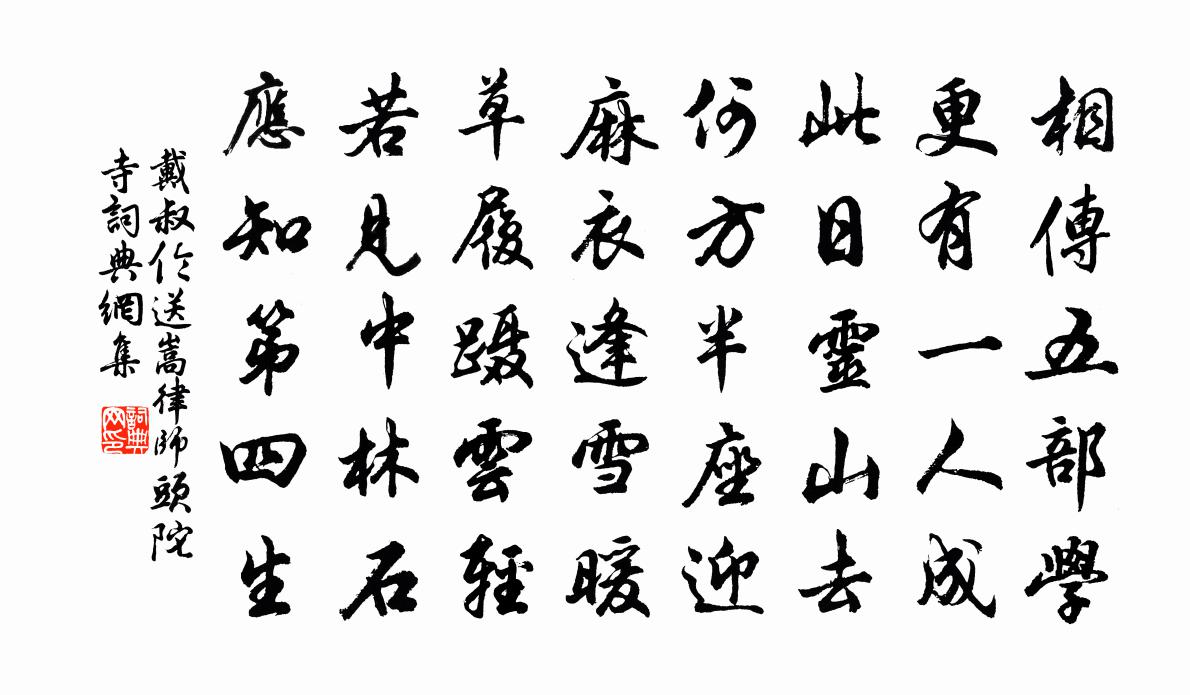 相傳五部學
更有一人成
此日靈山去
何方半座迎
麻衣逢雪暖
草履躡雲輕
若見中林石
應知第四生
戴叔伦送嵩律師頭陀
寺詞典網集
詞典网印